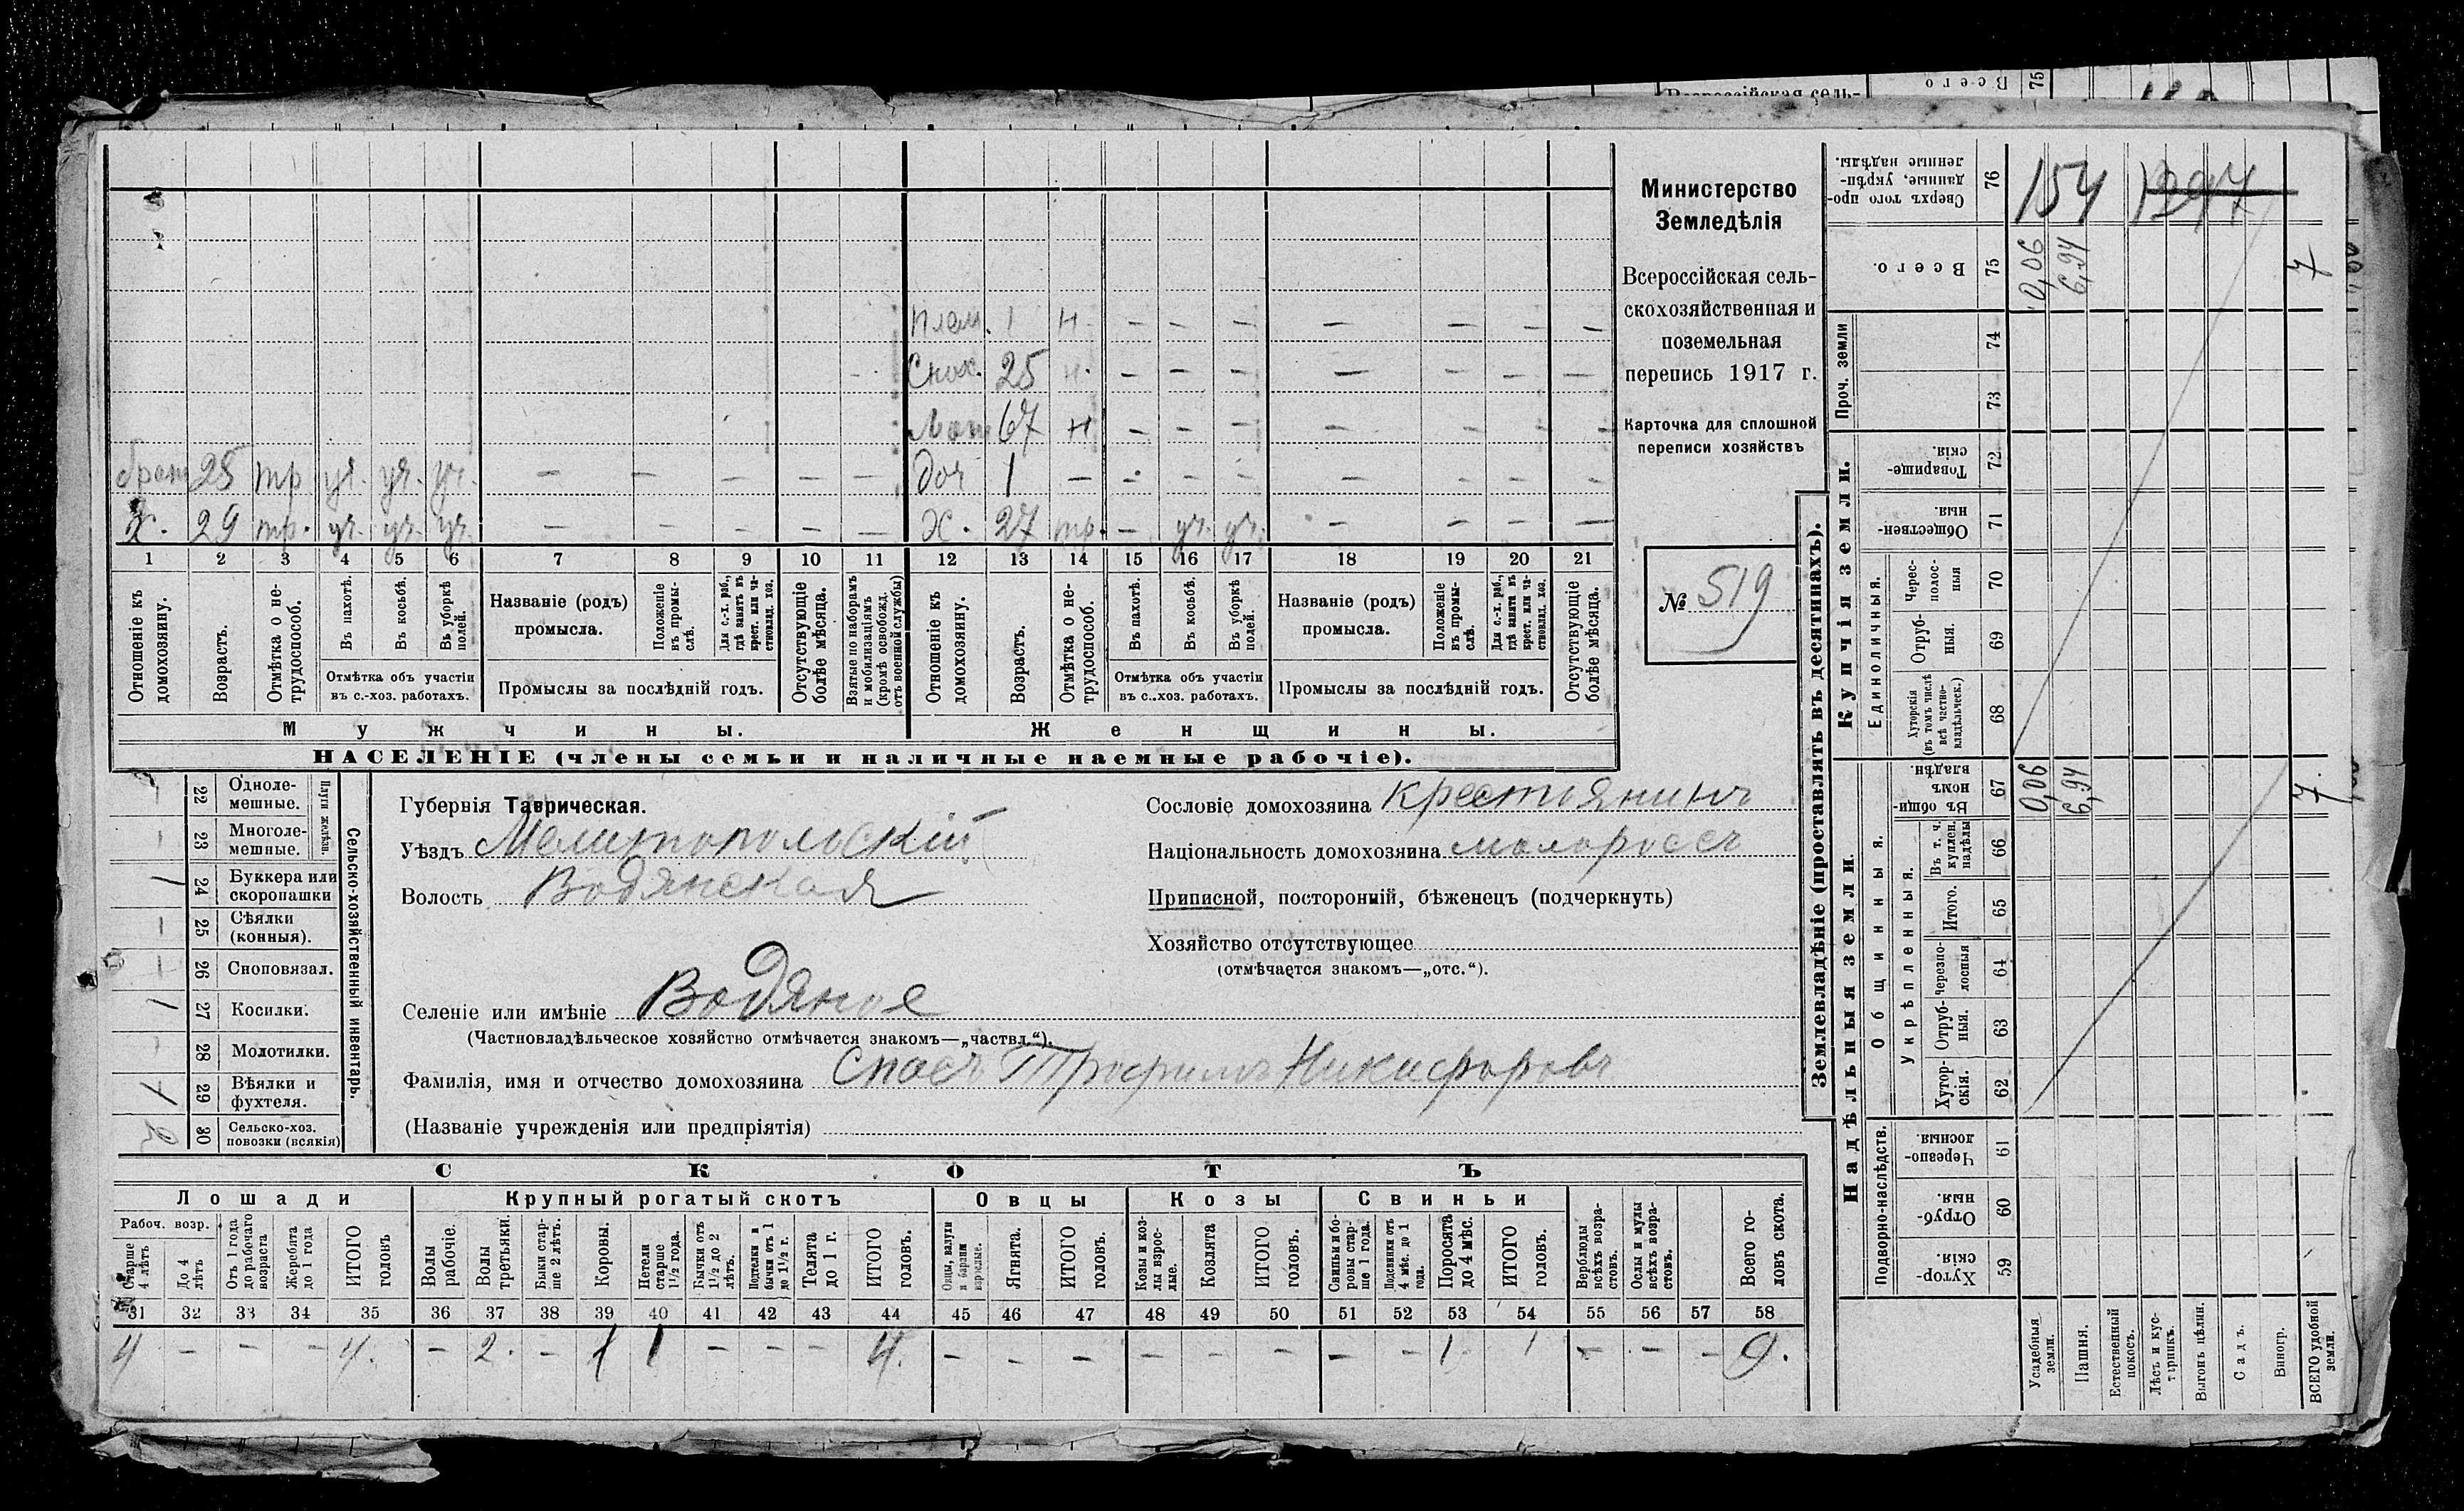 Всероссійская сель-
Всего 75
плем. 1 н - - - - - - -
Снох. 25 н. - - - - - - -
Мат 67 н - - - - - - -
брат 25 тр уч. уч. уч. - - - - -
доч 1 - - - - - - - -
Х. 29 тр. уч. уч. уч. - - - - -
Х. 27 тр. - уч. уч. - - - -
1 2 3 4 5 6 7 8 9 10 11 12 13 14 15 16 17 18 19 20 21
Отношеніе къ домохозяину.
Возрастъ.
Отмѣтка о не-трудоспособ.
Въ пахотѣ.
Въ косьбѣ.
Въ уборкѣ полей.
Отмѣтка объ участіи
въ с.-хоз. работахъ.
Названіе (родъ)
промысла.
Положеніе въ промы-слѣ.
Для с.-х. раб., гдѣ занятъ въ крест. или ча-стновлад. хоз.
Промыслы за послѣдній годъ.
Отсутствующіе болѣе мѣсяца.
Взятые по наборамъ и мобилизаціямъ (кромѣ освобожд. отъ военной службы)
Отношеніе къ домохозяину.
Возрастъ.
Отмѣтка о не-трудоспособ.
Въ пахотѣ.
Въ косьбѣ.
Въ уборкѣ полей.
Отмѣтка объ участіи
въ с.-хоз. работахъ.
Названіе (родъ)
промысла.
Положеніе въ промы-слѣ.
Для с.-х. раб., гдѣ занята въ крест. или ча-стновлад. хоз.
Промыслы за послѣдній годъ.
Отсутствующіе болѣе мѣсяца.
Мужчины.
Женщины.
НАСЕЛЕНІЕ (члены семьи и наличные наемные рабочіе).
Министерство
Земледѣлія
Всероссійская сель-
скохозяйственная и
поземельная
перепись 1917 г.
Карточка для сплошной
переписи хозяйствъ
№ 519
Сельско-хозяйственный инвентарь.
Плуги желѣзн.
- 22 Одноле-мешные.
- 23 Многоле-мешные.
1 24 Буккера или скоропашки
- 25 Сѣялки (конныя).
- 26 Сноповязал.
1 27 Косилки.
- 28 Молотилки.
1 29 Вѣялки и фухтеля.
2 30 Сельско-хоз. повозки (всякія)
Губернія Таврическая.
Уѣздъ Мелитопольскій
Волость Водянская
Селеніе или имѣніе Водяное
(Частновладѣльческое хозяйство отмѣчается знакомъ—„частвл.“).
Фамилія, имя и отчество домохозяина Спасъ Трофимъ Никифоровъ
(Названіе учрежденія или предпріятія)
Сословіе домохозяина крестьянинъ
Національность домохозяина малороссъ
Приписной, посторонній, бѣженецъ (подчеркнуть)
Хозяйство отсутствующее
(отмѣчается знакомъ—„отс.“).
СКОТЪ
Лошади
Рабоч. возр.
Старше 4 лѣтъ
До 4 лѣтъ
Отъ 1 года до рабочаго возраста
Жеребята до 1 года
ИТОГО головъ
Крупный рогатый скотъ
Волы рабочіе.
Волы третьяки.
Быки стар-ше 2 лѣтъ.
Коровы.
Нетели старше 1½ года.
Бычки отъ 1½ до 2 лѣтъ.
Подтелки и бычки отъ 1 до 1½ г.
Телята до 1 г.
ИТОГО головъ.
Овцы
Овцы, валухи и бараны взрослые.
Ягнята.
ИТОГО головъ.
Козы
Козы и коз-лы взрос-лые.
Козлята
ИТОГО головъ.
Свиньи
Свиньи и бо-ровы стар-ше 1 года.
Подсвинки отъ 4 мѣс. до 1 года.
Поросята до 4 мѣс.
ИТОГО головъ.
Верблюды всѣхъ возра-стовъ.
Ослы и мулы всѣхъ возра-стовъ.
Всего го-ловъ скота.
31 32 33 34 35 36 37 38 39 40 41 42 43 44 45 46 47 48 49 50 51 52 53 54 55 56 57 58
4 - - - 4. - 2. - 1 1 - - - 4. - - - - - - - - 1 1 - - - 9.
Землевладѣніе (проставлять въ десятинахъ).
Сверхъ того про-данные, укрѣп-ленные надѣлы. 76 154 1397
Всего. 75 0,06 6,94 7
Проч. земли
74
73
Купчія земли.
Товарище-скія. 72
Обществен-ныя. 71
Единоличныя.
Черес-полос-ныя 70
Отруб-ныя. 69
Хуторскія (въ томъ числѣ всѣ частно-владѣльческ.) 68
Надѣльныя земли.
Общинныя.
Въ общи-номъ владѣн. 67 0,06 6,94 7.
Укрѣпленныя.
Въ т. ч. куплен. надѣлы 66
Итого. 65
Черезпо-лосныя 64
Отруб-ныя. 63
Хутор-скія. 62
Подворно-наслѣдств.
Черезпо-лосныя. 61
Отруб-ныя. 60
Хутор-скія. 59
Усадебныя земли.
Пашня.
Естественный покосъ.
Лѣсъ и кус-тарникъ.
Выгонъ цѣлин.
Садъ.
Виногр.
ВСЕГО удобной земли.